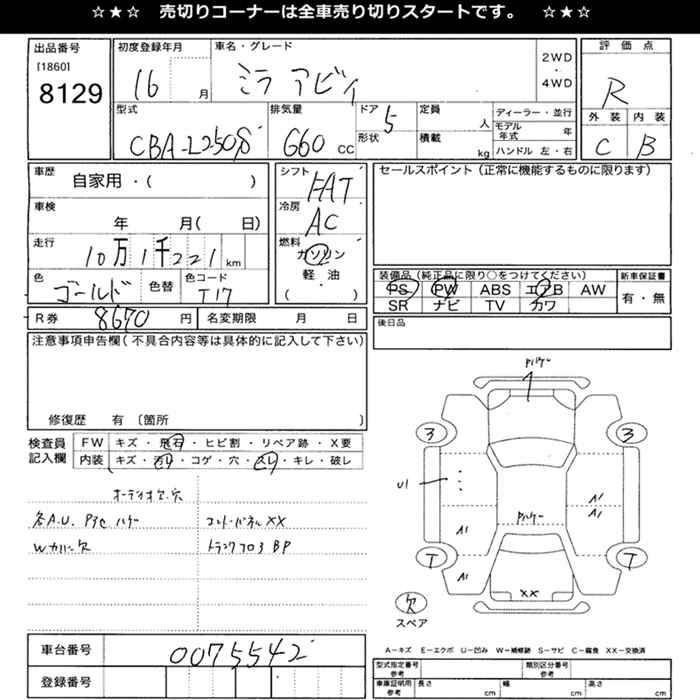 ☆★☆ 売切りコーナーは全車売り切りスタートです。 ☆★☆
出品番号
[1860]
8129
初度登録年月
16 月
車名・グレード
ミラ アビィ
2WD
・
4WD
評価点
R
型式
CBA-L250S
排気量
660 cc
ドア 5
形状
定員
人
積載
kg
ディーラー・並行
モデル年式 年
ハンドル 左・右
外装 内装
C B
車歴
自家用・( )
車検
年 月( 日)
走行
10万1千221 km
色
ゴールド
色替
色コード
T17
シフト
FAT
冷房
AC
燃料
ガソリン
軽・油
( )
セールスポイント(正常に機能するものに限ります)
装備品(純正品に限り○をつけてください)
PS PW ABS エアB AW
SR ナビ TV カワ
新車保証書
有・無
R券 8670 円
名変期限 月 日
後日品
注意事項申告欄(不具合内容等は具体的に記入して下さい)
修復歴 有 〔箇所
検査員
記入欄
FW キズ・飛石・ヒビ割・リペア跡・X要
内装 キズ・汚レ・コゲ・穴・スレ・キレ・破レ
オーディオ欠.穴
各A.U. P3セ ハゲ
コアサポートパネルXX
Wカバー欠
トランクフロア BP
Pハゲー
3
3
U1
A1
A1
A1
Pハゲー
T
T
A1
XX
欠
スペア
A-キズ E-エクボ U-凹み W-補修跡 S-サビ C-腐食 XX-交換済
車台番号
0075542
登録番号
型式指定番号
参考
類別区分番号
参考
車庫証明用
参考
長さ cm
幅 cm
高さ cm